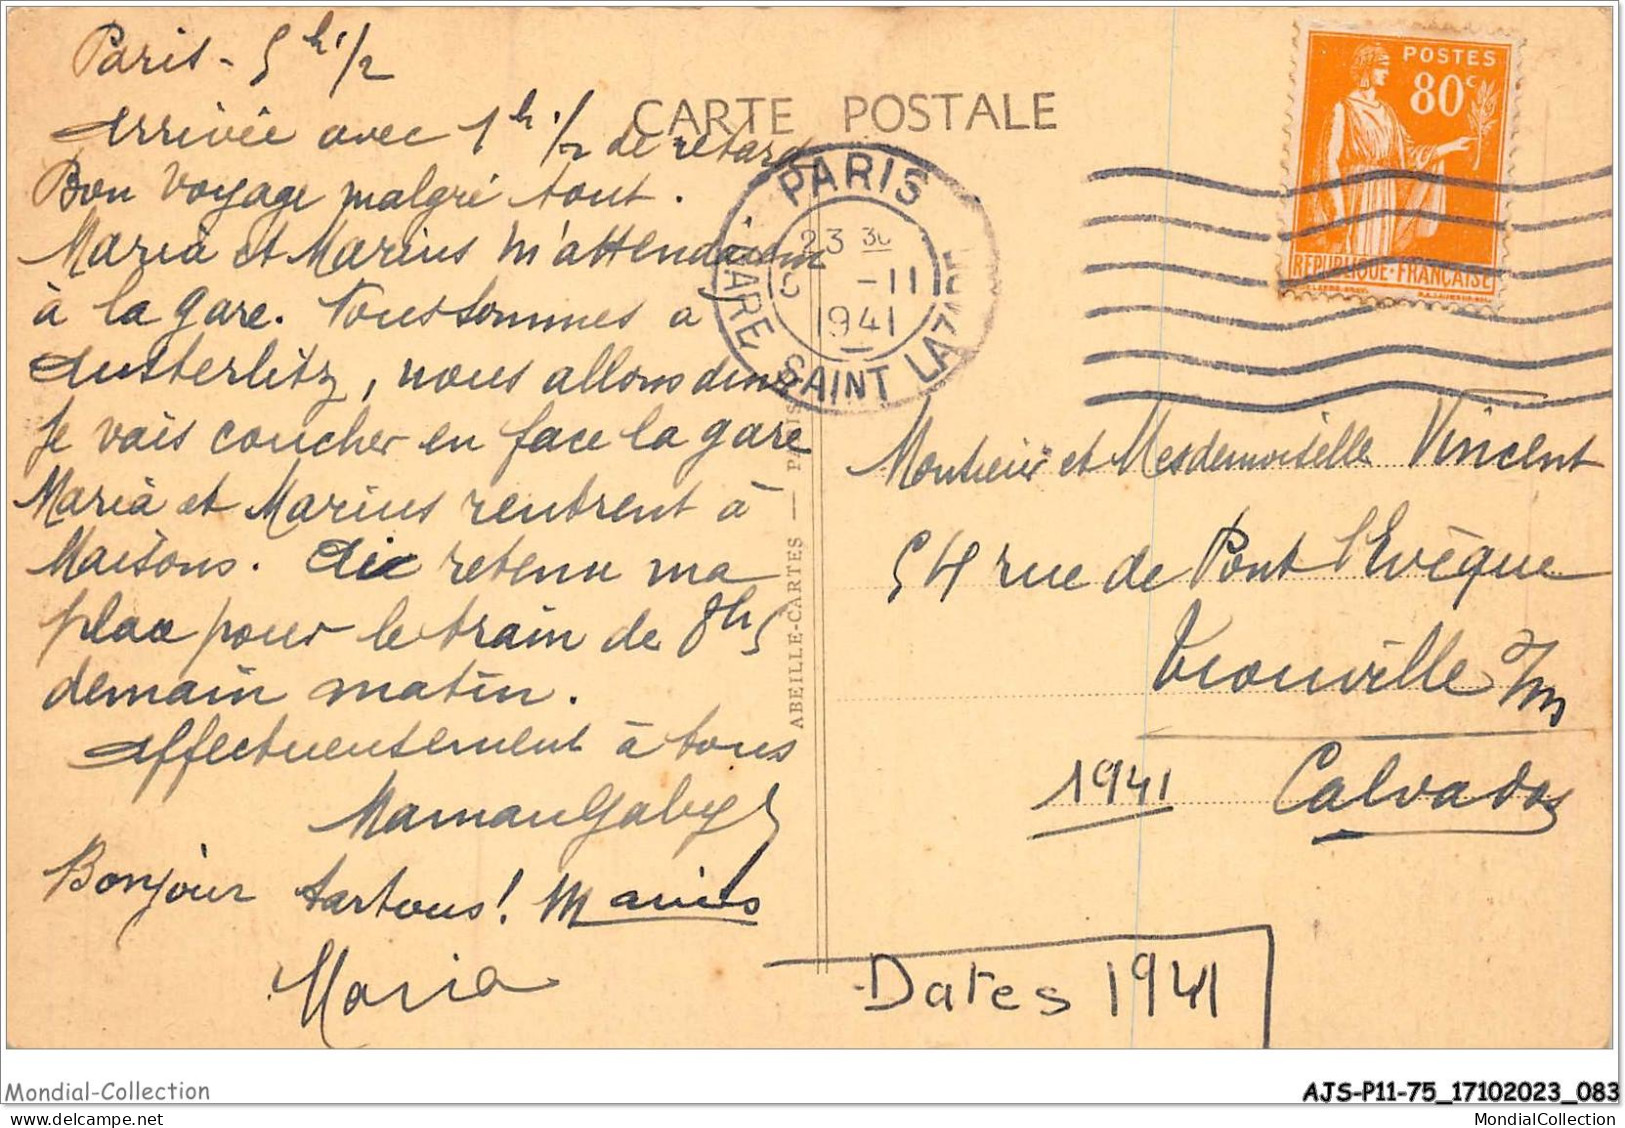 Paris - 5h 1/2
Arrivée avec 1h 1/2 de retard
Bon voyage malgré tout.
Maria et Marius m'attendaient
à la gare. Nous sommes à
Austerlitz, nous allons diner
Je vais coucher en face la gare
Maria et Marius rentrent à
Maisons. Ai retenu ma
place pour le train de 8h5
demain matin.
Affectueusement à tous
Maman Gaby
Bonjour tartous! Marius
Maria
CARTE POSTALE
ABEILLE-CARTES — PARIS
PARIS
23 30
-11
1941
GARE SAINT LAZARE
POSTES
80c
REPUBLIQUE-FRANÇAISE
Monsieur et Mesdemoiselle Vincent
54 rue de Pont l'Evèque
Trouville s/m
1941
Calvados
Dates 1941
Mondial-Collection
AJS-P11-75_17102023_083
MondialCollection